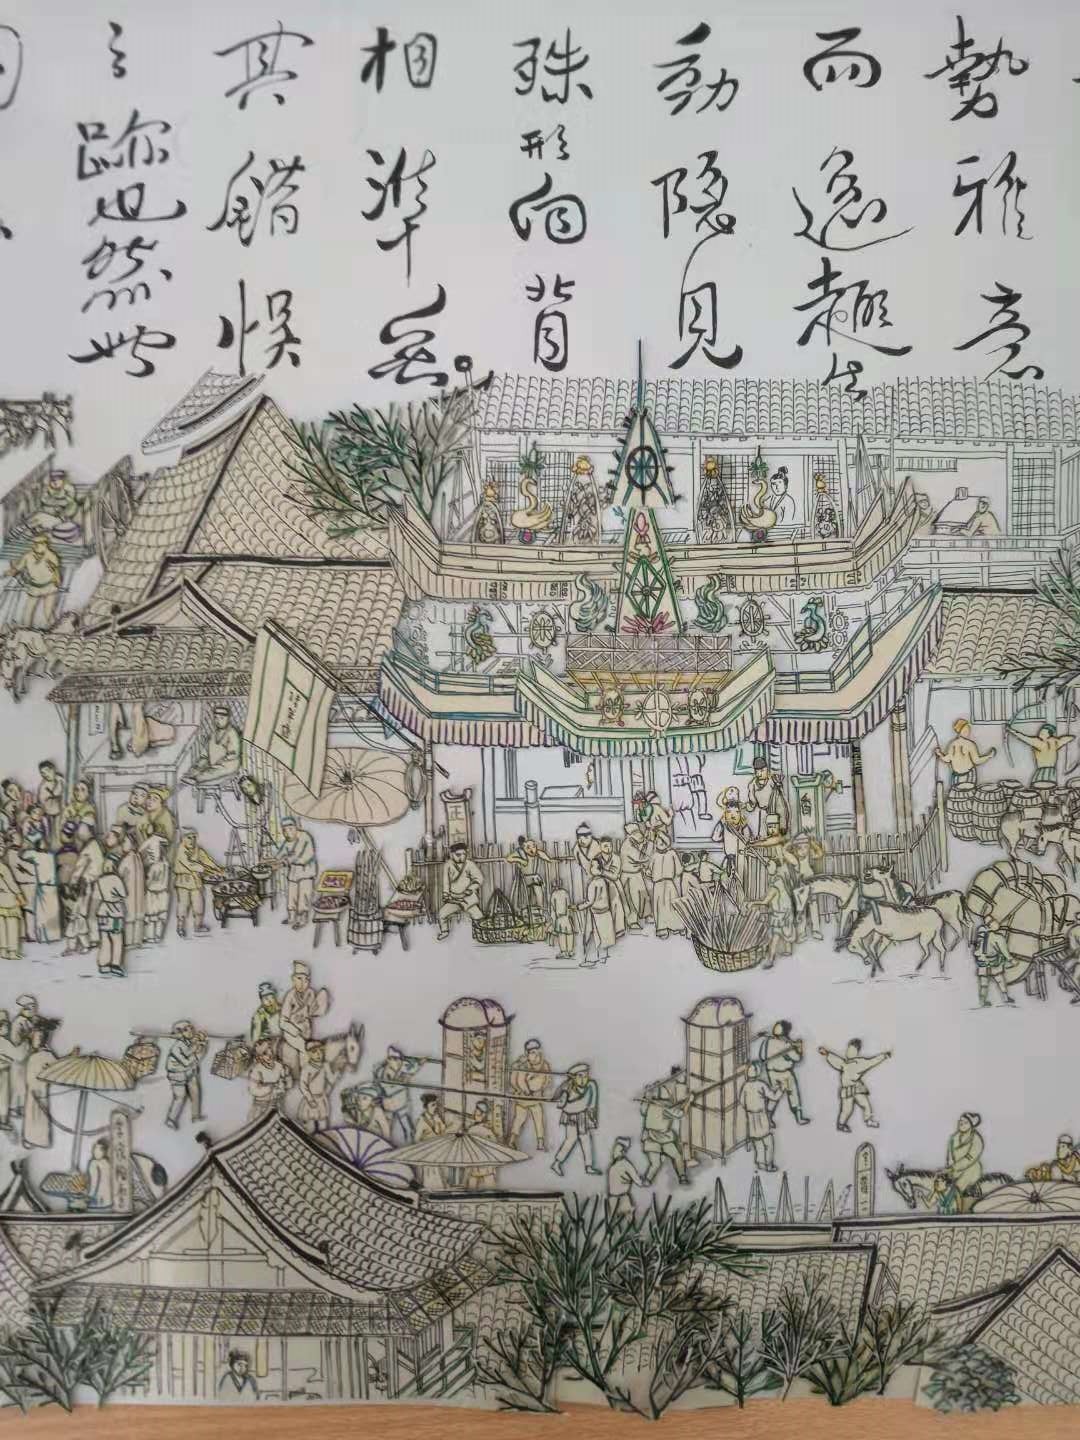 勢雅意
而逸趣生
動隐見
殊形向背
相準無
其錯悞
之跡也然此
正
香